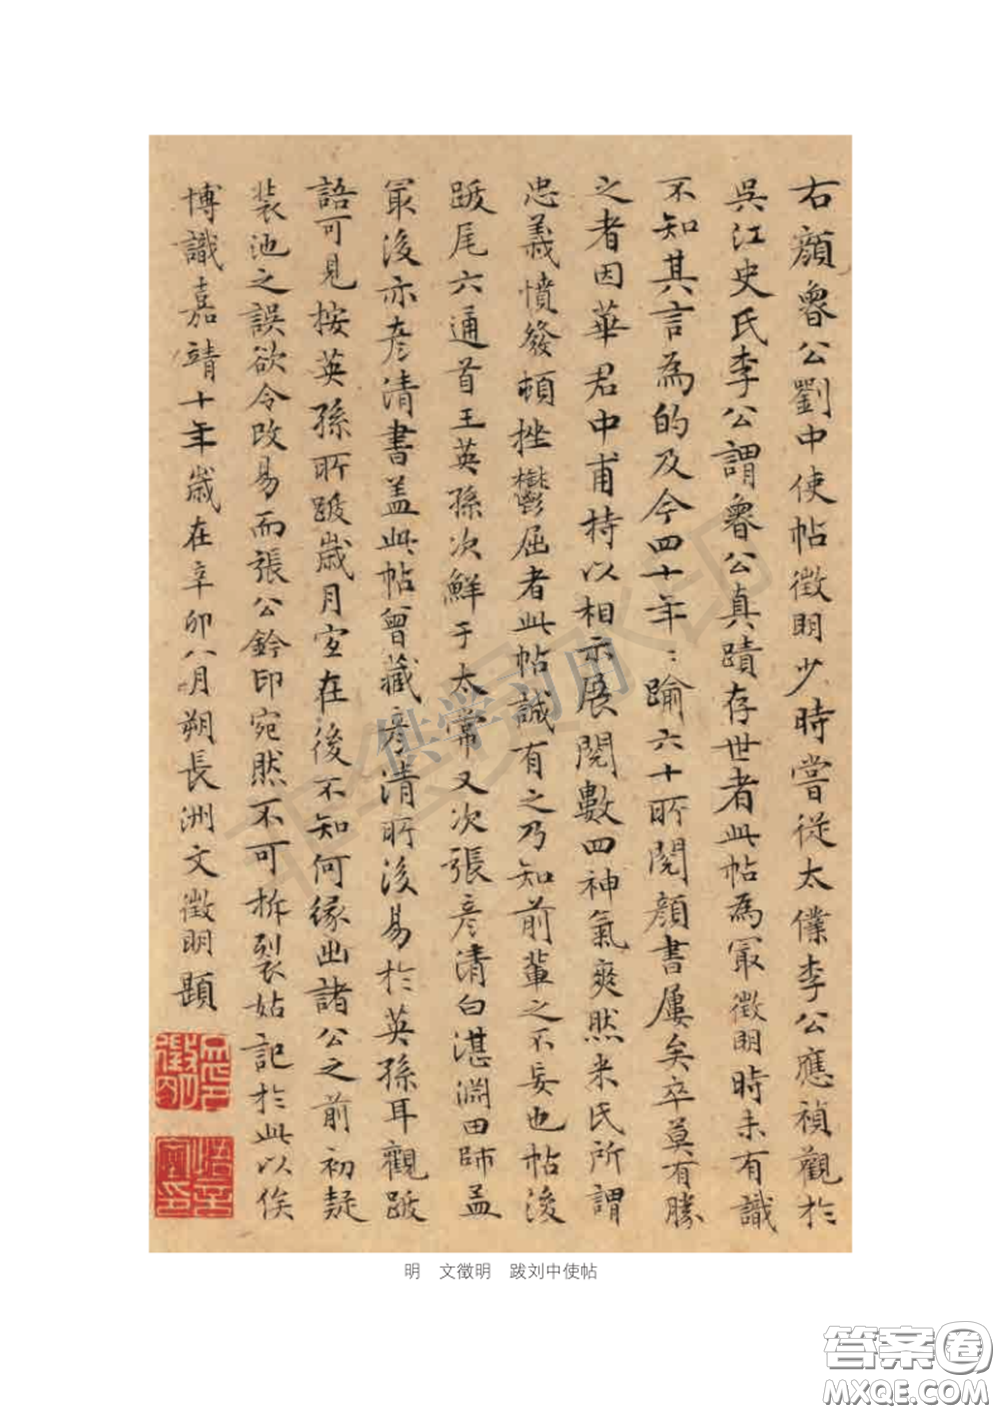 右顏魯公劉中使帖徵明少時嘗從太僕李公應禎觀於
吳江史氏李公謂魯公真蹟存世者此帖為冣徵明時未有識
不知其言為的及今四十年：踰六十所閱顏書屢矣卒莫有勝
之者因華君中甫持以相示展閱數四神氣爽然米氏所謂
忠義憤發頓挫鬱屈者此帖誠有之乃知前輩之不妄也帖後
跋尾六通首王英孫次鮮于太常又次張彥清白湛淵田師孟
冣後亦彥清書盖此帖曾藏彥清所後易於英孫耳觀跋
語可見按英孫所跋歲月宜在後不知何緣出諸公之前初疑
裝池之誤欲令改易而張公鈐印宛然不可拆裂姑記於此以俟
博識嘉靖十年歲在辛卯八月朔長洲文徵明題
明 文徵明 跋刘中使帖
仅供学习用
答案圈
MXQE.COM